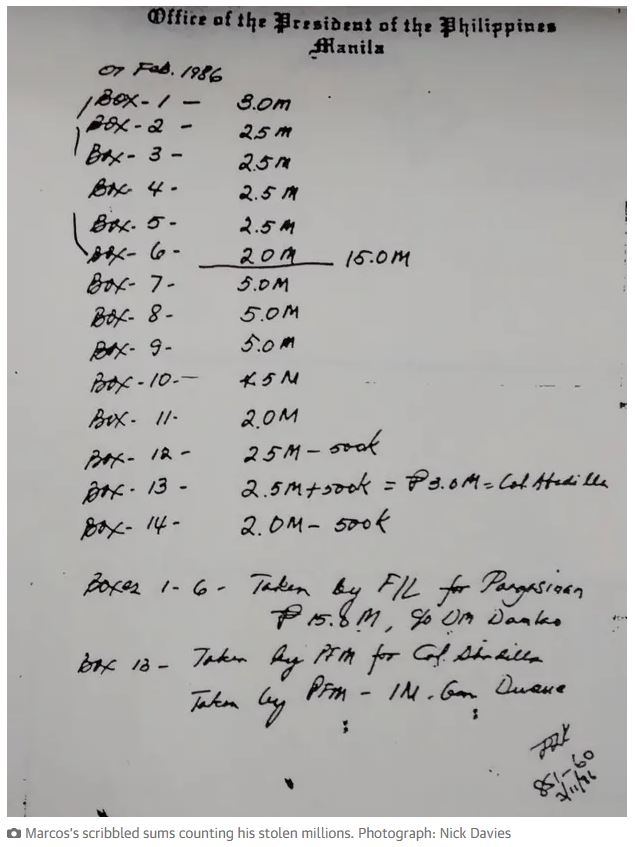 Office of the President of the Philippines
Manila
07 Feb. 1986
Box - 1 - 3.0M
Box - 2 - 2.5M
Box - 3 - 2.5M
Box 4 - 2.5M
Box. 5 - 2.5M
Box - 6 - 2.0M 15.0M
Box - 7 - 5.0M
Box - 8 - 5.0M
Box - 9 - 5.0M
Box - 10. -
Box - 11 - 2.0M
Box - 12 - 2.5M - 500k
Box - 13 - 2.5M + 500k = ₱3.0M = Col. Abadilla
Box - 14 - 2.0M - 500k
Boxes 1 - 6 - Taken by F/L for Pangasinan
₱ 15.8M, c/o DM
Box 13 - Taken by PFM for Col. Abadilla
Taken by PFM - 1M. Gen
2/11/86
Marcos's scribbled sums counting his stolen millions. Photograph: Nick Davies